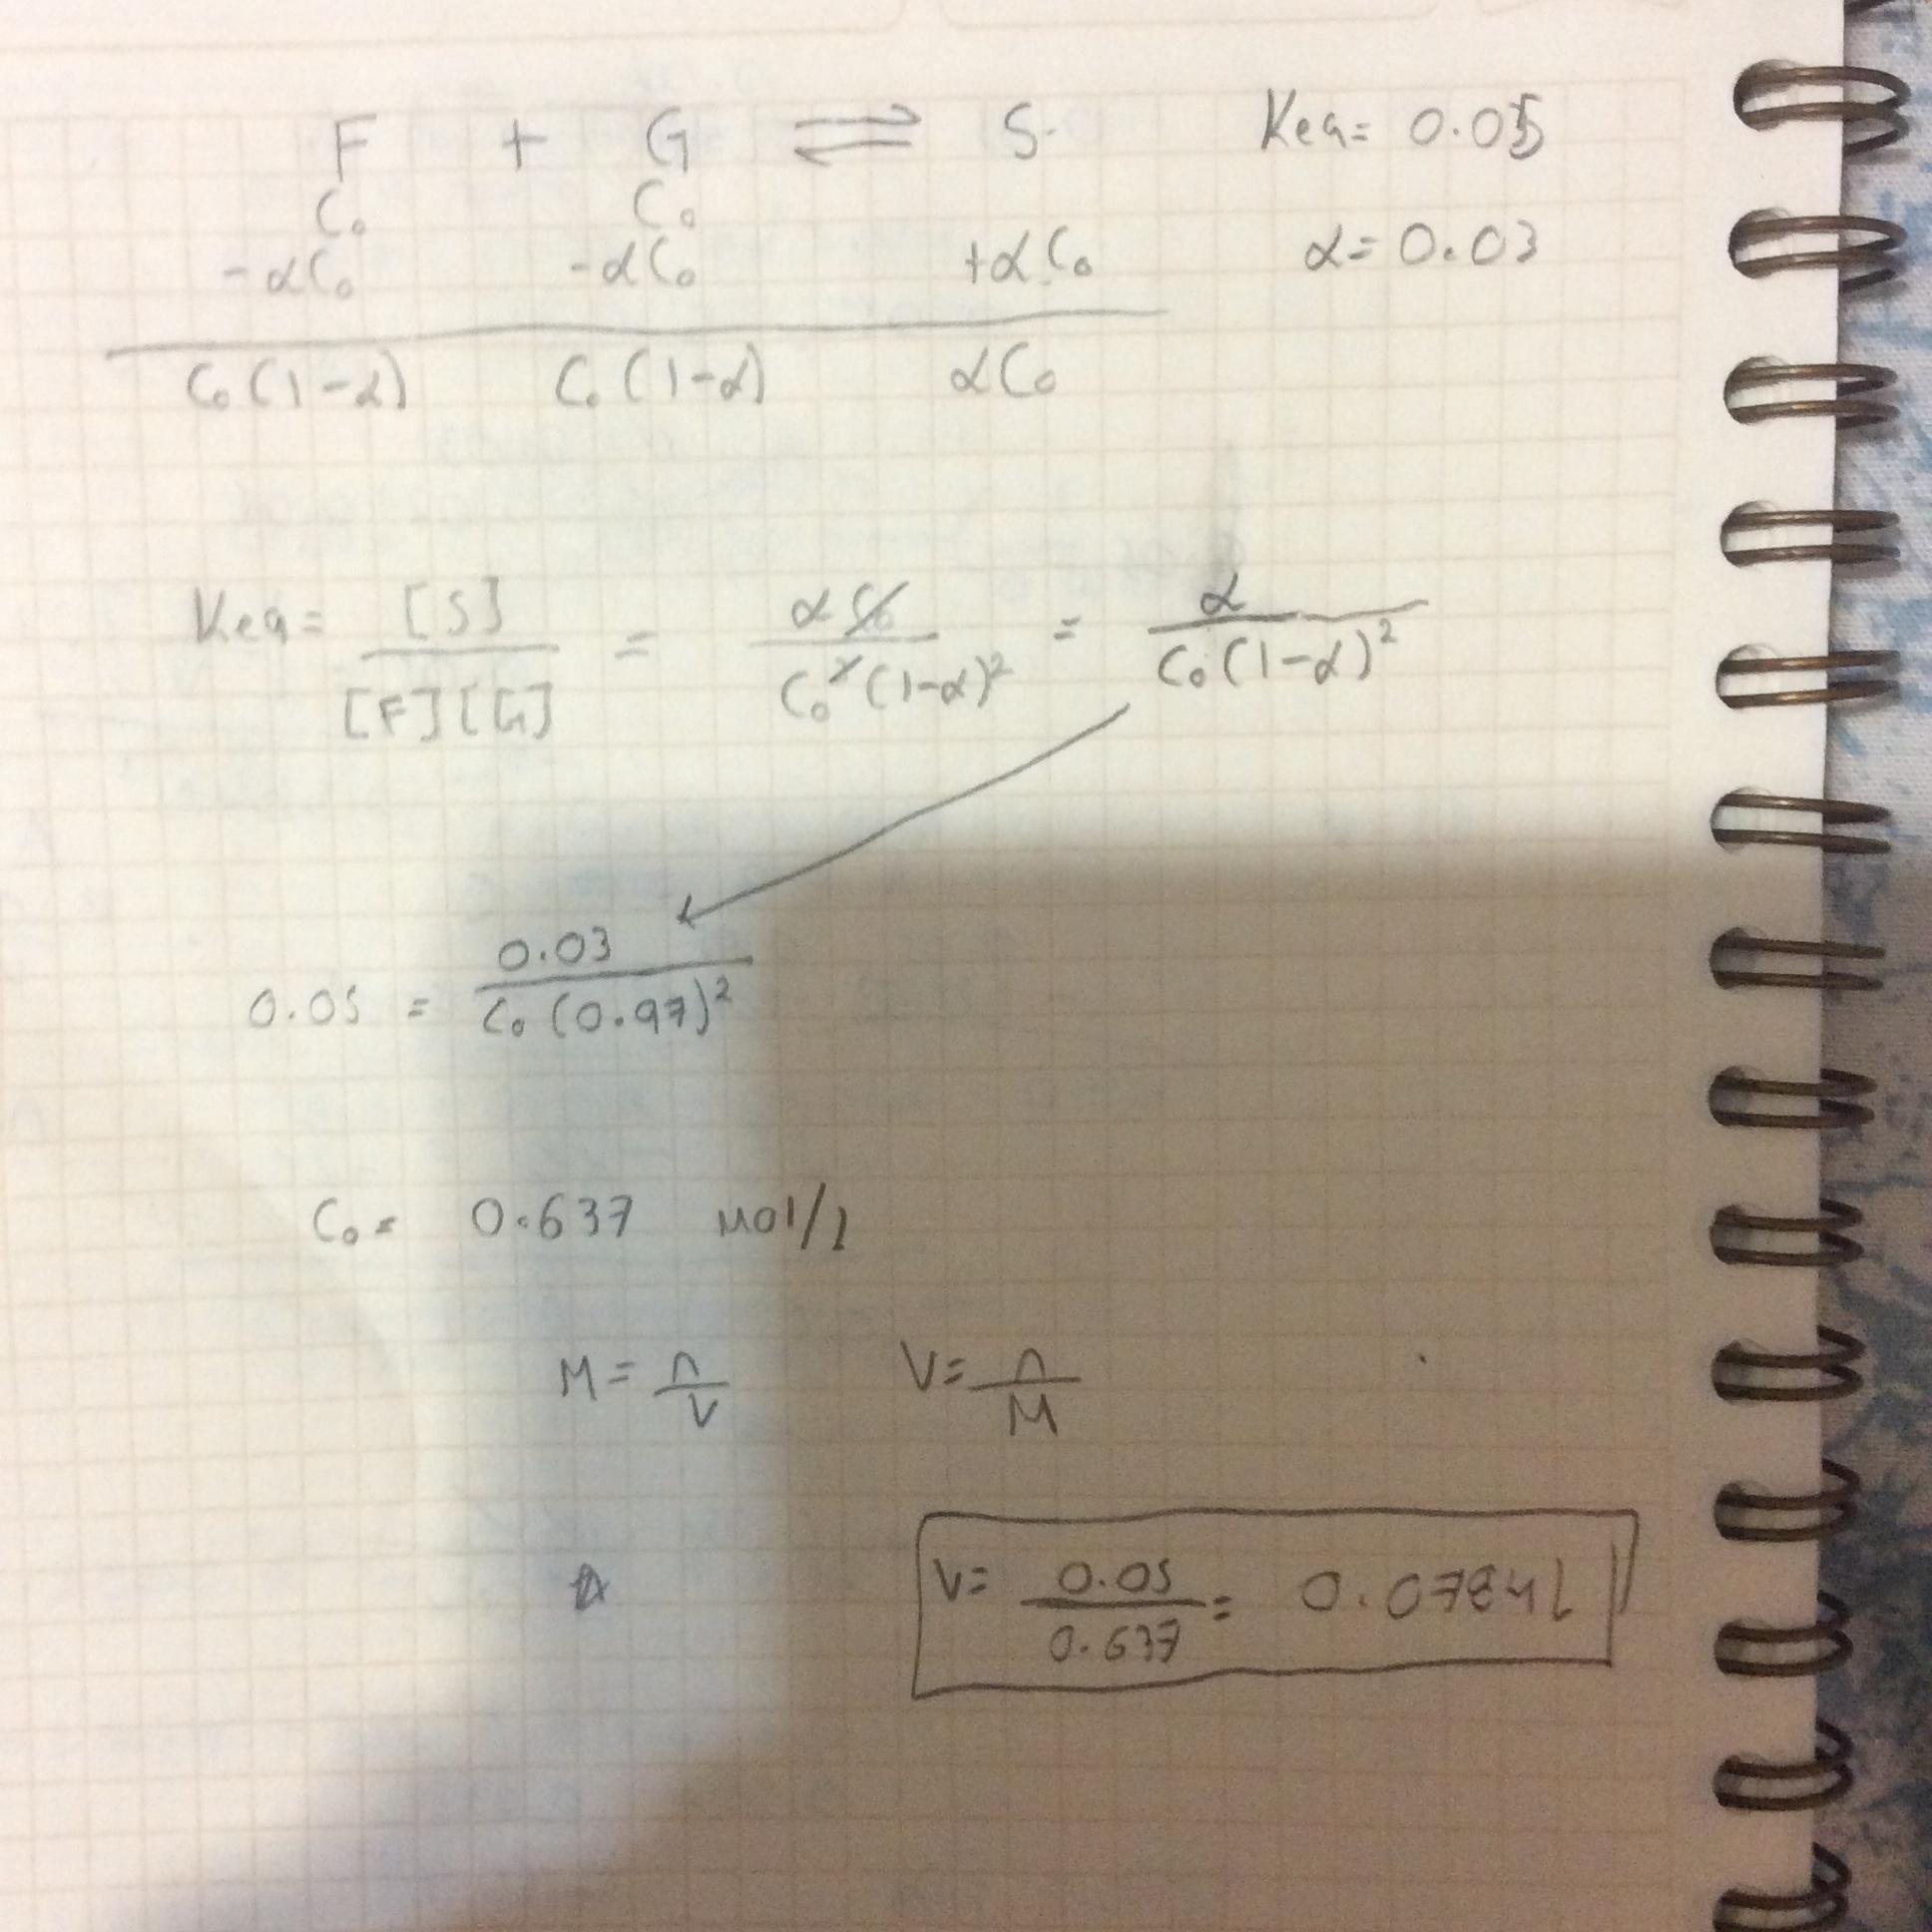 F + G ⇌ S. Keq= 0.05
C₀ C₀
-αC₀ -αC₀ +αC₀ α= 0.03
C₀(1-α) C₀(1-α) αC₀
Keq= [S]/[F][G] = αC₀/C₀²(1-α)² = α/C₀(1-α)²
0.05 = 0.03/C₀(0.97)²
C₀= 0.637 mol/l
M= n/V V= n/M
V= 0.05/0.637 = 0.0784l